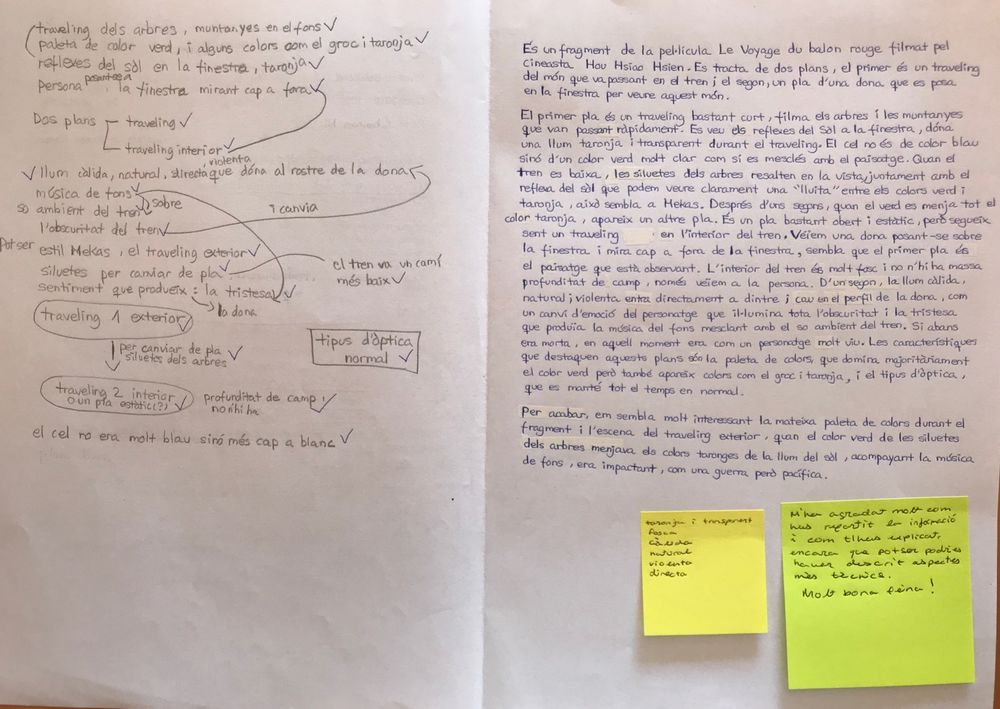 traveling dels arbres, muntanyes en el fons ✓
paleta de color verd, i alguns colors com el groc i taronja ✓
reflexes del sòl en la finestra, taronja ✓
Persona posant-se a la finestra mirant cap a fora ✓
Dos plans
traveling ✓
traveling interior ✓
violenta
✓ llum càlida, natural, directa que dóna al rostre de la dona
música de fons ✓
sobre
i canvia
so ambient del tren ✓
l'obscuritat del tren ✓
Potser estil Mekas, el traveling exterior ✓
el tren va un camí
més baix ✓
siluetes per canviar de pla ✓
sentiment que produeix: la tristesa ✓
la dona
traveling 1 exterior ✓
per canviar de pla
siluetes dels arbres ✓
tipus d'òptica
normal ✓
traveling 2 interior
o un pla estàtic(?) ✓
profunditat de camp ✓
no n'hi ha
el cel no era molt blau sinó més cap a blanc ✓
És un fragment de la pel·lícula Le Voyage du balon rouge filmat pel
cineasta Hou Hsiao Hsien. Es tracta de dos plans, el primer és un traveling
del món que va passant en el tren i el segon, un pla d'una dona que es posa
en la finestra per veure aquest món.
El primer pla és un traveling bastant curt, filma els arbres i les muntanyes
que van passant ràpidament. Es veu els reflexes del Sòl a la finestra, dóna
una llum taronja i transparent durant el traveling. El cel no és de color blau
sinó d'un color verd molt clar com si es mesclés amb el paisatge. Quan el
tren es baixa, les siluetes dels arbres resalten en la vista, juntament amb el
reflexa del sòl que podem veure clarament una "lluita" entre els colors verd i
taronja, això sembla a Mekas. Després d'uns segons, quan el verd es menja tot el
color taronja, apareix un altre pla. És un pla bastant obert i estàtic, però segueix
sent un traveling en l'interior del tren. Véiem una dona posant-se sobre
la finestra i mira cap a fora de la finestra, sembla que el primer pla és
el paisatge que està observant. L'interior del tren és molt fosc i no n'hi ha massa
profunditat de camp, només veiem a la persona. D'un segon, la llum càlida,
natural i violenta entra directament a dintre i cau en el perfil de la dona, com
un canvi d'emoció del personatge que il·lumina tota l'obscuritat i la tristesa
que produïa la música del fons mesclant amb el so ambient del tren. Si abans
era morta, en aquell moment era com un personatge molt viu. Les característiques
que destaquen aquests plans són la paleta de colors, que domina majoritàriament
el color verd però també apareix colors com el groc i taronja, i el tipus d'òptica,
que es manté tot el temps en normal.
Per acabar, em sembla molt interessant la mateixa paleta de colors durant el
fragment i l'escena del traveling exterior, quan el color verd de les siluetes
dels arbres menjava els colors taronges de la llum del sòl, acompayant la música
de fons, era impactant, com una guerra però pacífica.
taronja i transparent
fosca
càlida
natural
violenta
directa
M'ha agradat molt com
has repartit la informació
i com t'has explicat,
encara que potser podries
haver descrit aspectes
més tècnics.
Molt bona feina!